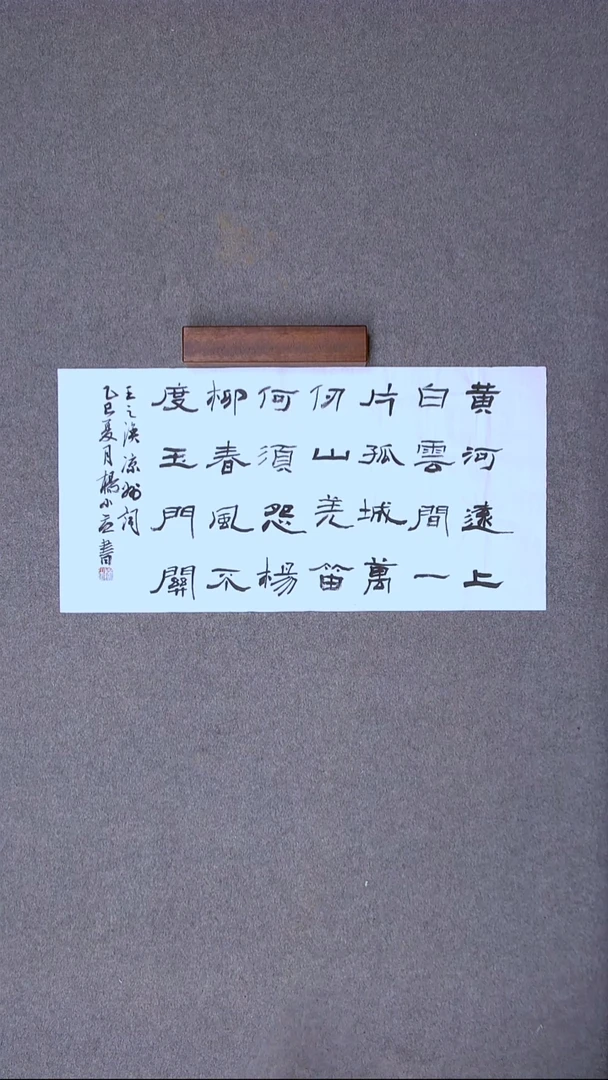 黄河遠上
白雲間一
片孤城萬
仞山羌笛
何須怨楊
柳春風不
度玉門關
王之渙涼州詞
乙巳夏月楊小書